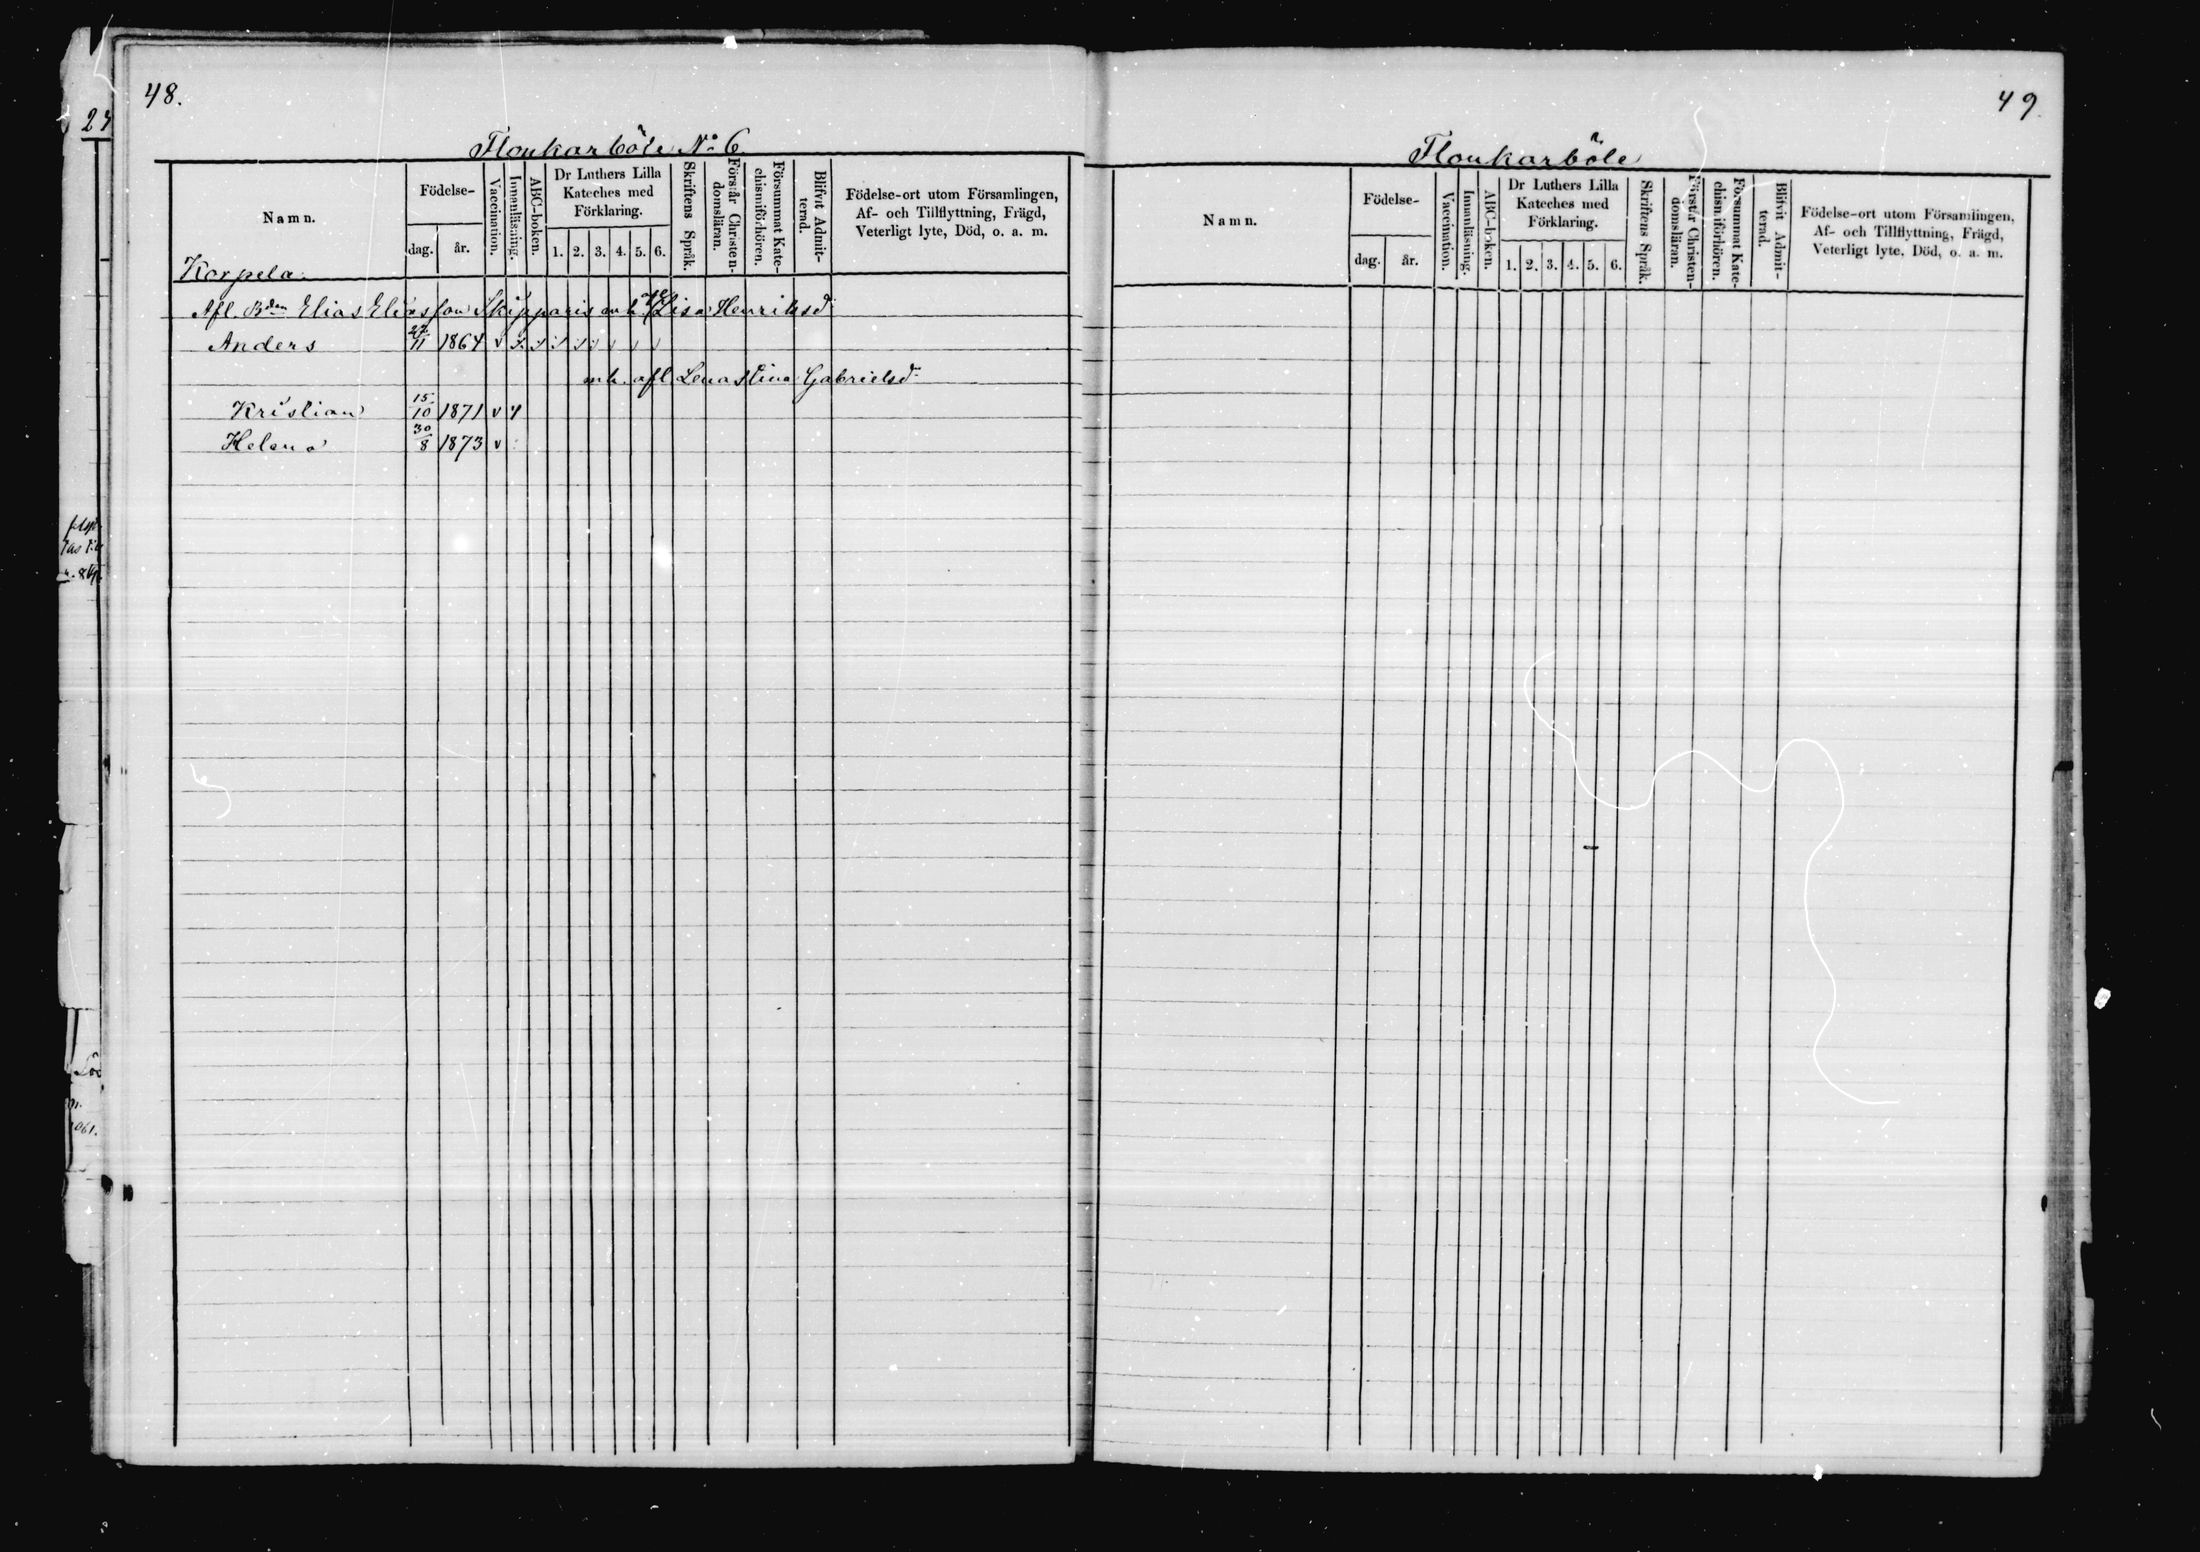 48.
Flonkarböle No 6
Namn.
Födelse-
dag. år.
Vaccination.
Innanläsning.
ABC-boken.
Dr Luthers Lilla
Kateches med
Förklaring.
1. 2. 3. 4. 5. 6.
Skriftens Språk.
Förstår Christen-
domsläran.
Försummat Kate-
chismiförhören.
Blifvit Admit-
terad.
Födelse-ort utom Församlingen,
Af- och Tillflyttning, Frägd,
Veterligt lyte, Död, o. a. m.
Korpela
Afl. Bden Elias Eliasson Skipparis m h. afl Lisa Henriksd
Anders 27/11 1864 v
m h. afl Lena Stina Gabrielsd
Kristian 15/10 1871 v
Helena 30/8 1873 v
49
Flonkarböle
Namn.
Födelse-
dag. år.
Vaccination.
Innanläsning.
ABC-boken.
Dr Luthers Lilla
Kateches med
Förklaring.
1. 2. 3. 4. 5. 6.
Skriftens Språk.
Förstår Christen-
domsläran.
Försummat Kate-
chismiförhören.
Blifvit Admit-
terad.
Födelse-ort utom Församlingen,
Af- och Tillflyttning, Frägd,
Veterligt lyte, Död, o. a. m.